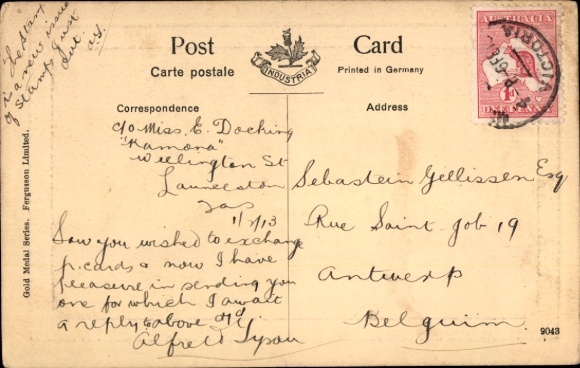 The stamp
is a new issue
of stamps just
out. A.T.
Post Card
Carte postale
INDUSTRIA
Printed in Germany
AUSTRALIA
1d
ONE PENNY
VICTORIA
Correspondence
Address
c/o Miss. E. Docking
"Ramona"
Wellington St
Launceston
Tas
1/2/13
Saw you wished to exchange
p.cards & now I have
pleasure in sending you
one for which I await
a reply to above add.
Alfred Tyson
Sebastein Gellissen Esq
Rue Saint-Job 19
Antwerp
Belguim
Gold Medal Series. Fergusson Limited.
9043